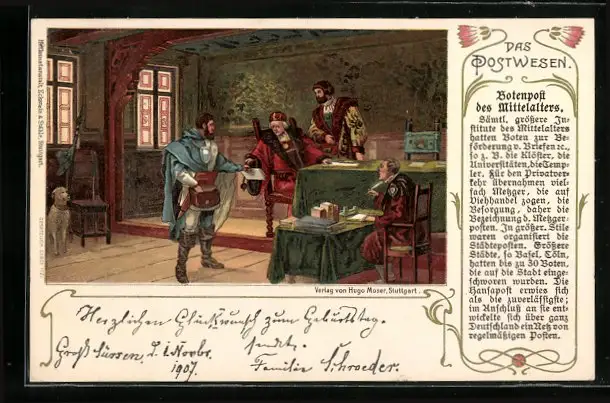 DAS
POSTWESEN.
Botenpost
des Mittelalters.
Sämtl. größere In-
stitute des Mittelalters
hatten Boten zur Be-
förderung v. Briefen ec.,
so z. B. die Klöster, die
Universitäten, die Temp-
ler. Für den Privatver-
kehr übernahmen viel-
fach Metzger, die auf
Viehhandel zogen, die
Besorgung, daher die
Bezeichnung d. Metzger-
posten. In größer. Stile
waren organisiert die
Städteposten. Größere
Städte, so Basel, Cöln,
hatten bis zu 30 Boten,
die auf die Stadt einge-
schworen wurden. Die
Hansapost erwies sich
als die zuverlässigste;
im Anschluß an sie ent-
wickelte sich über ganz
Deutschland ein Netz von
regelmäßigen Posten.
Verlag von Hugo Moser, Stuttgart.
Herzlichen Glückwunsch zum Geburtstag.
sendet.
Groß Süssen, d. 1 Novbr.
1907.
Familie Schroeder.